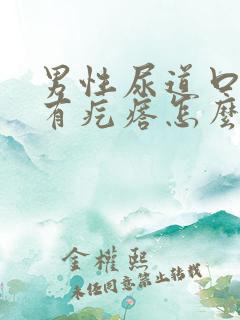 男性尿道口
有疙瘩怎麼
金權熙
未经同意禁止转载